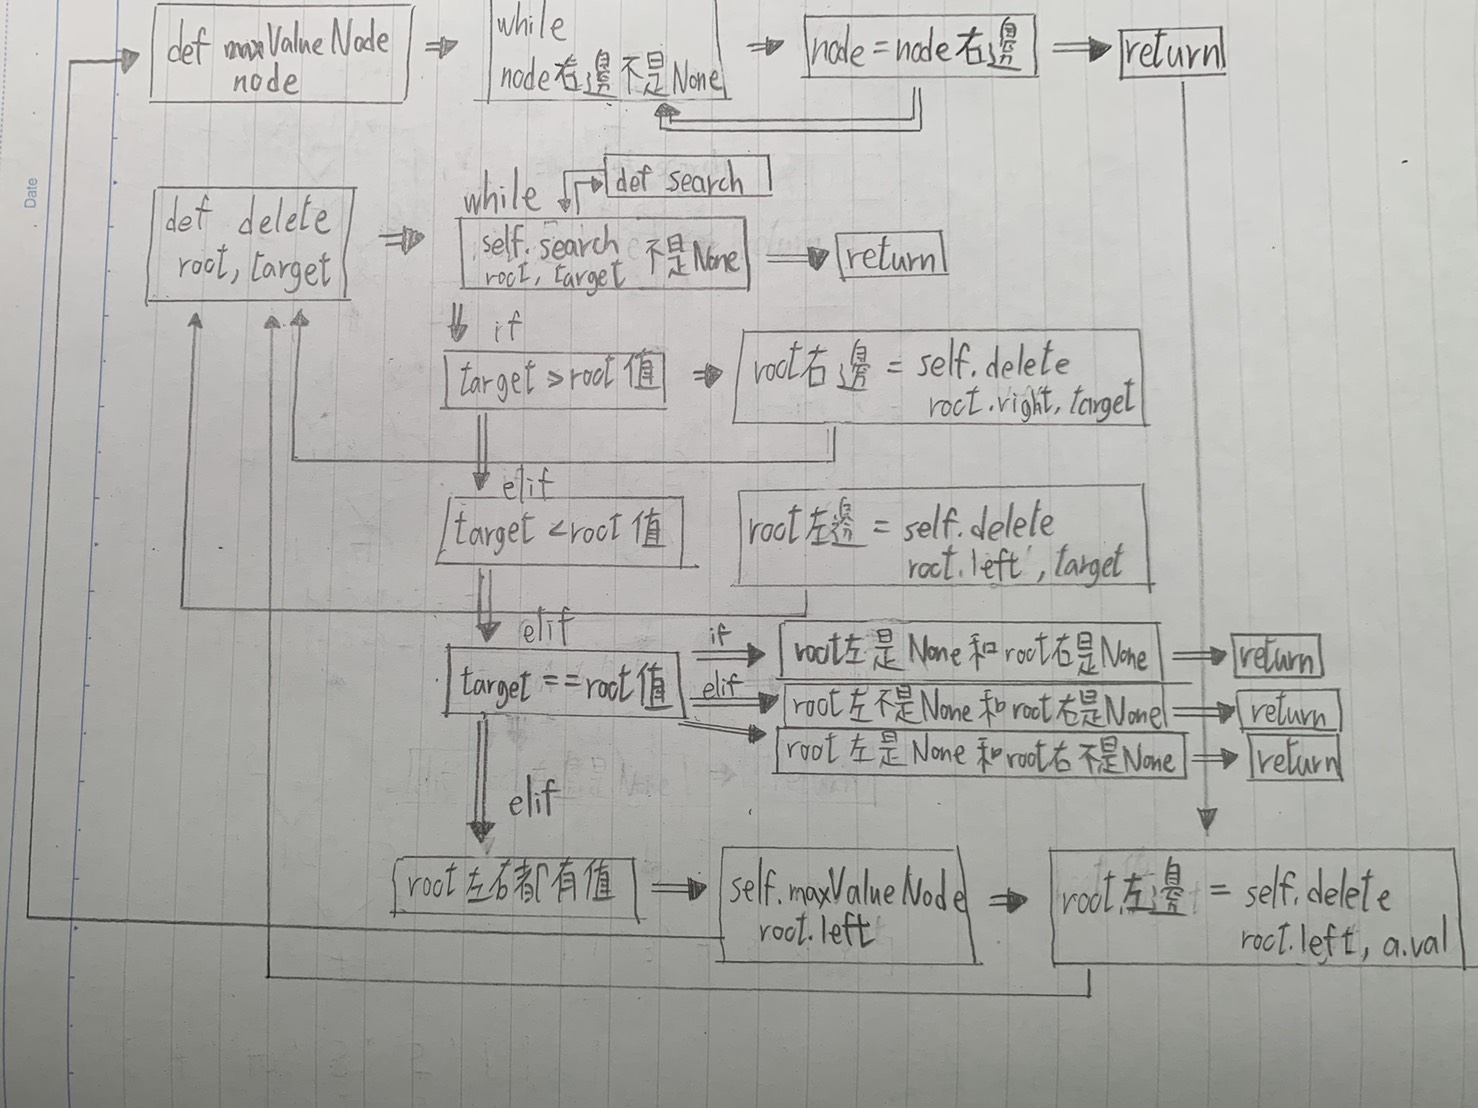 def maxValueNode
node
while
node右邊不是None
node = node右邊
return
Date
def delete
root, target
while
def search
self.search
root, target 不是None
return
if
target > root值
root右邊 = self.delete
root.right, target
elif
target < root值
root左邊 = self.delete
root.left, target
elif
target == root值
if
root左是None和root右是None
return
elif
root左不是None和root右是None
return
root左是None和root右不是None
return
elif
root左右都有值
self.maxValueNode
root.left
root左邊 = self.delete
root.left, a.val